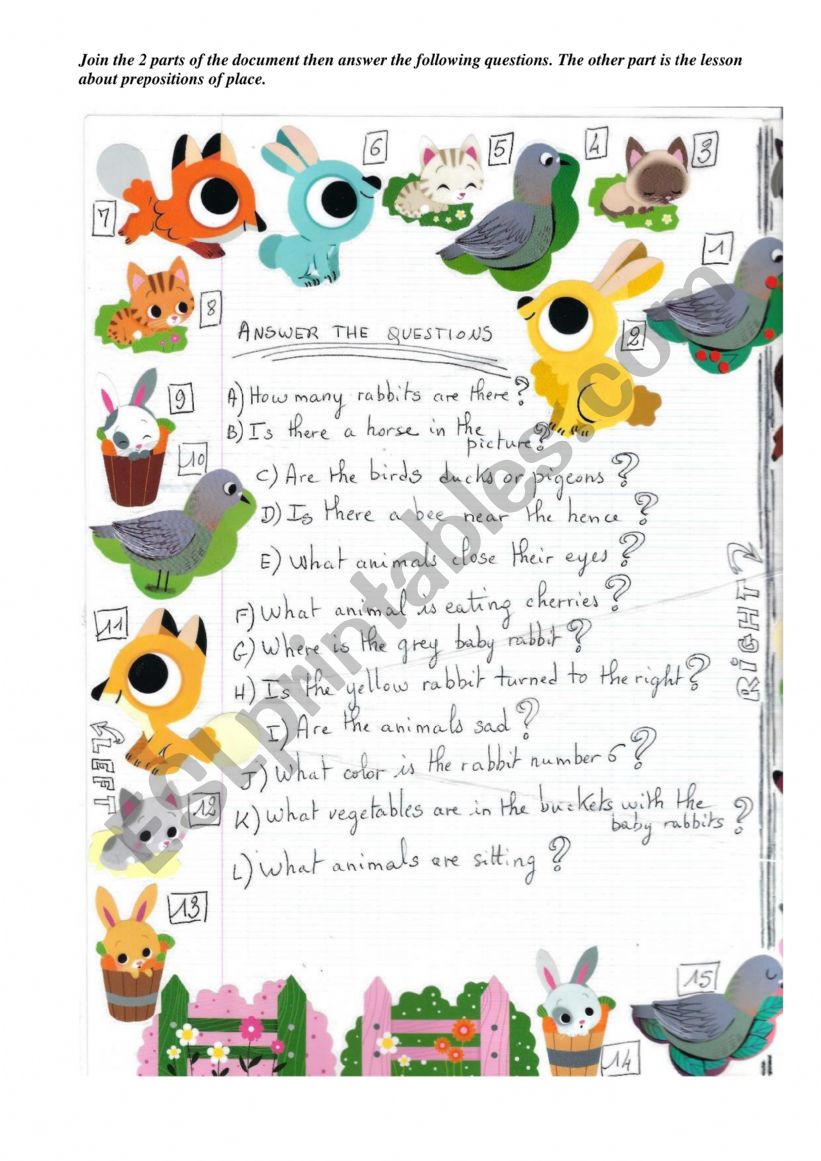 Join the 2 parts of the document then answer the following questions. The other part is the lesson
about prepositions of place.
7
6
5
4
3
1
2
8
ANSWER THE QUESTIONS
9
A) How many rabbits are there?
B) Is there a horse in the
picture?
10
C) Are the birds ducks or pigeons?
D) Is there a bee near the hence?
E) What animals close their eyes?
F) What animal is eating cherries?
11
G) Where is the grey baby rabbit?
H) Is the yellow rabbit turned to the right?
RIGHT
I) Are the animals sad?
LEFT
J) What color is the rabbit number 6?
12
K) What vegetables are in the buckets with the
baby rabbits?
L) What animals are sitting?
13
15
14
ESLprintables.com